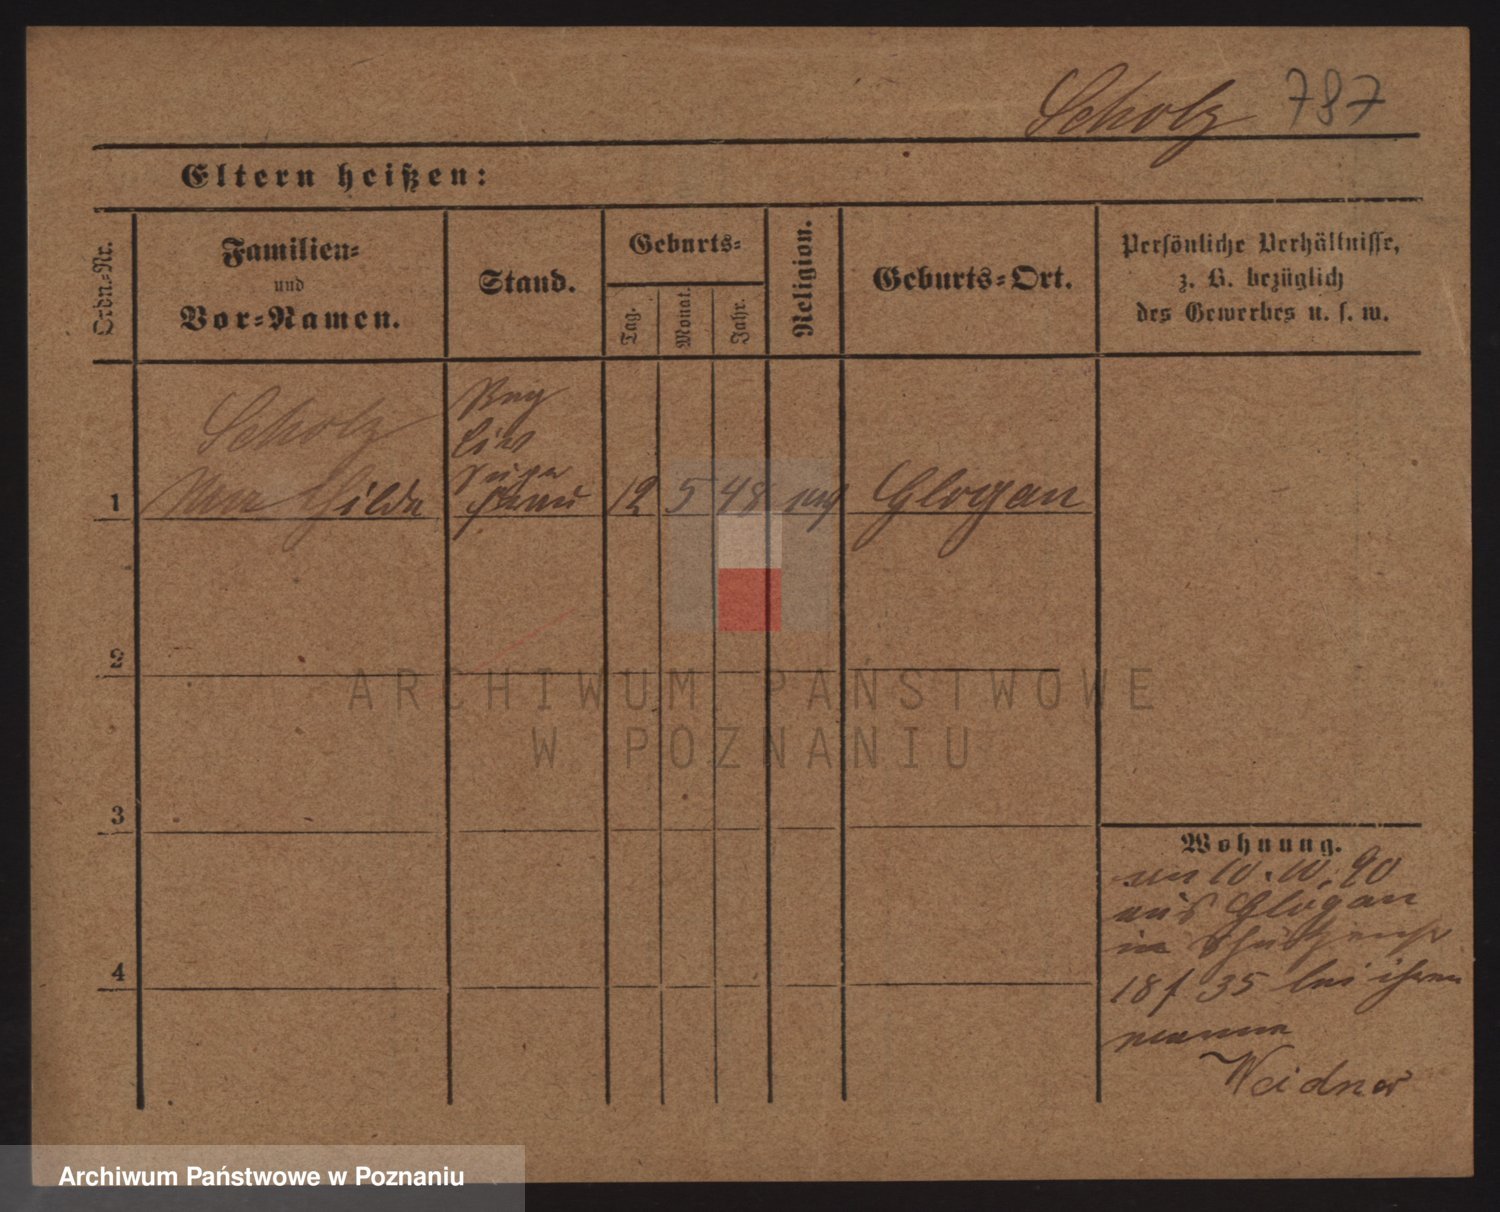 Scholz 787
Eltern heißen:
Ordn.-Nr.
Familien-
und
Vor-Namen.
Stand.
Geburts-
Tag.
Monat.
Jahr.
Religion.
Geburts-Ort.
Persönliche Verhältnisse,
z. B. bezüglich
des Gewerbes u. s. w.
Scholz
1 Hilda frau 12 5 48 Glogau
2
3
4
Wohnung.
10.10.90
aus Glogau
in
18 f 35 bei ihrem
manne
Weidner
ARCHIWUM PAŃSTWOWE
W POZNANIU
Archiwum Państwowe w Poznaniu